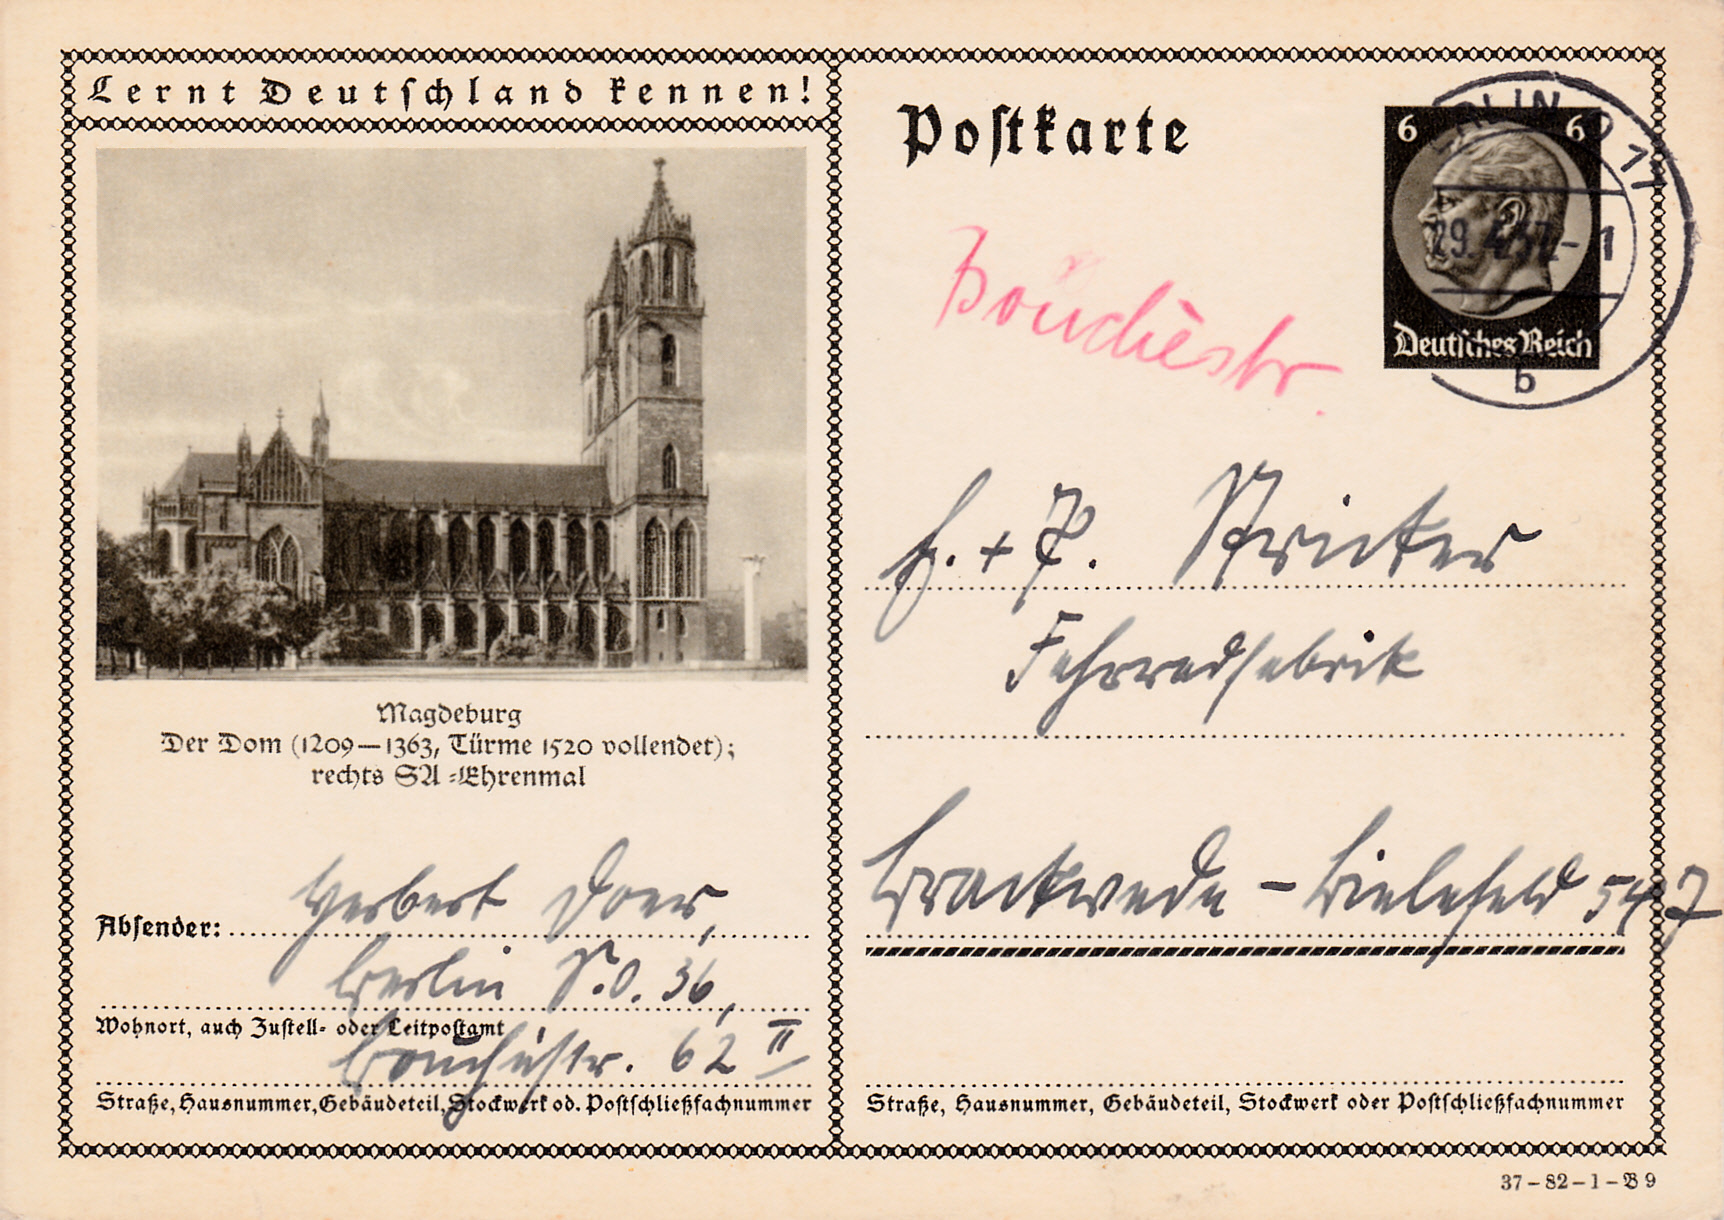 Lernt Deutschland kennen!
Magdeburg
Der Dom (1209—1363, Türme 1520 vollendet);
rechts SA-Ehrenmal
Absender:
Herbert Doer,
Berlin S.O. 36,
Wohnort, auch Zustell- oder Leitpostamt
Bouchéstr. 62 II
Straße, Hausnummer, Gebäudeteil, Stockwerk od. Postschließfachnummer
Postkarte
6 6
Deutsches Reich
29.4.37.- 1
b
Bouchéstr.
E. + P. Stricker
Fahrradfabrik
Brackwede - Bielefeld 547
Straße, Hausnummer, Gebäudeteil, Stockwerk oder Postschließfachnummer
37-82-1-B9